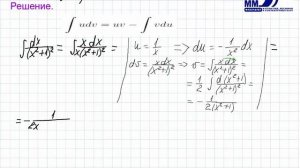 Решение.
MM
∫ u dv = uv − ∫ v du
∫ dx/(x²+1)² = ∫ x dx/x(x²+1)² = | u = 1/x => du = −1/x² dx | =
dv = x dx/(x²+1)² => v = ∫ x dx/(x²+1)² =
= 1/2 ∫ d(x²+1)/(x²+1)² =
= − 1/2(x²+1)
= − 1/2x